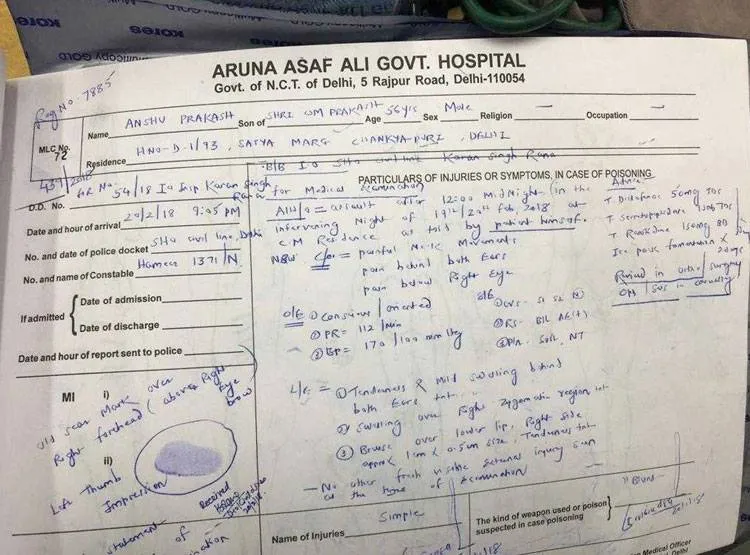 kores
ARUNA ASAF ALI GOVT. HOSPITAL
Govt. of N.C.T. of Delhi, 5 Rajpur Road, Delhi-110054
Reg No. 7885
MLC No. 72
Name ANSHU PRAKASH Son of SHRI OM PRAKASH Age 56 yrs Sex Male Religion — Occupation —
Residence H No-D-1/93, SATYA MARG CHANKYA-PURI, DELHI
B/B I O SHO civil line Karan Singh Rana
D.D. No. FIR No. 54/18 Io Insp Karan Singh Rana
Date and hour of arrival 20/2/18 9:05 PM
No. and date of police docket SHO civil line, Delhi
No. and name of Constable 1371/N
If admitted
Date of admission
Date of discharge
Date and hour of report sent to police
MI i) old scar Mark over
Right forehead (above Right
Eye brow)
ii)
Left Thumb
Impression
Received
PARTICULARS OF INJURIES OR SYMPTOMS, IN CASE OF POISONING
for Medical Examination
A/H/O = assault after 12:00 MidNight (in the
intervening Night of 19th/20th Feb, 2018 at
C.M Residence as told by patient himself.
Now C/o = painful Neck Movements
pain behind both Ears
pain below Right Eye
O/E ① Conscious / oriented
② PR = 112 /min
③ BP = 170 /100 mm Hg
S/E ① CVS - S1 S2 N
② RS - B/L AE(+)
③ P/A Soft, NT
L/E = ① Tenderness & Mild swelling behind
both Ears
② swelling over Right zygomatic region
③ Bruise over lower lip, Right side
approx 1 cm x 0.5 cm size, Tenderness
— No other fresh visible external injury seen
at the time of Examination
Advice
T. 50 mg TDS
T. BD
Ice pack fomentation x 2 days
Review in ortho/surgery
OPD / SOS in casualty
Name of Injuries Simple
The kind of weapon used or poison
suspected in case poisoning
Blunt
statement of
Medical Officer
Delhi